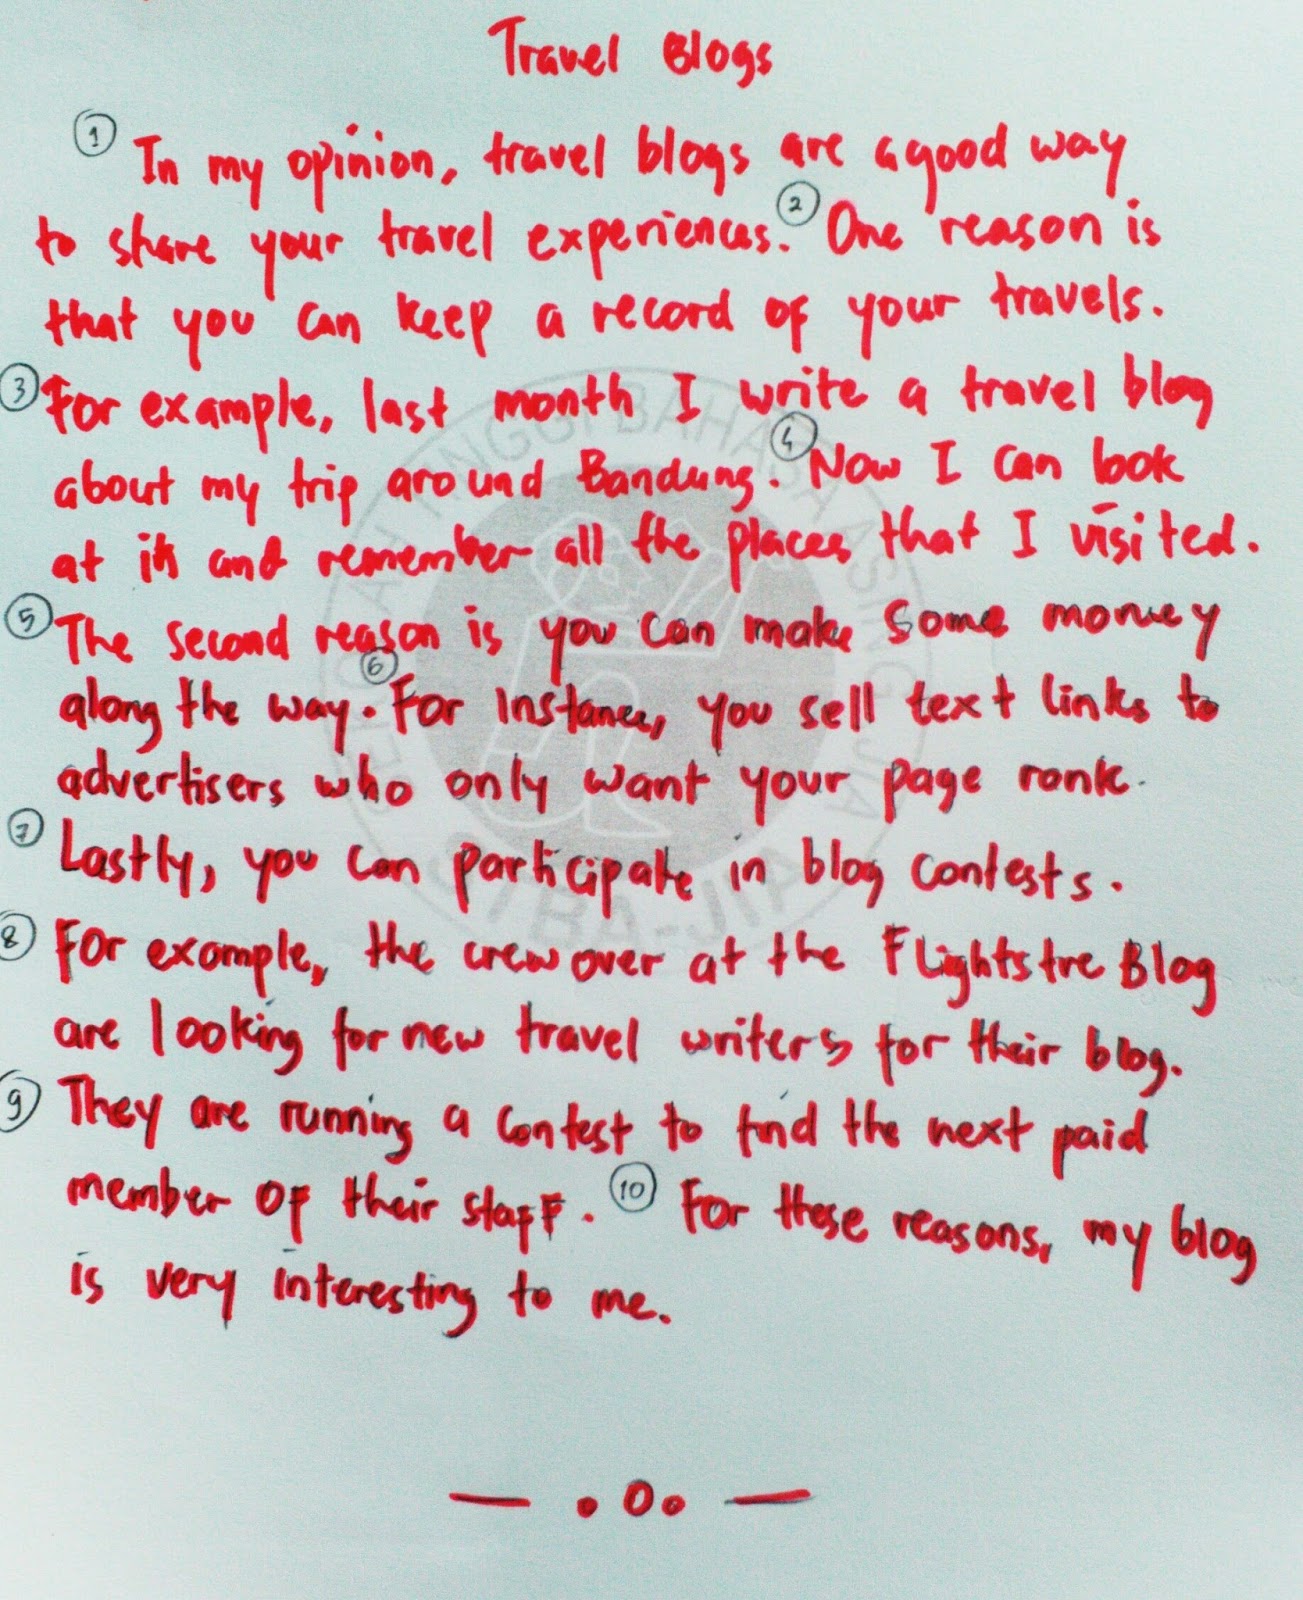 Travel Blogs
① In my opinion, travel blogs are a good way
to share your travel experiences. ② One reason is
that you can keep a record of your travels.
③ For example, last month I write a travel blog
about my trip around Bandung. ④ Now I can look
at it and remember all the places that I visited.
⑤ The second reason is you can make some money
along the way. ⑥ For instance, you sell text links to
advertisers who only want your page rank.
⑦ Lastly, you can participate in blog contests.
⑧ For example, the crew over at the Flightstre Blog
are looking for new travel writers for their blog.
⑨ They are running a contest to find the next paid
member of their staff. ⑩ For these reasons, my blog
is very interesting to me.
SEKOLAH TINGGI BAHASA ASING JIA
STBA-JIA